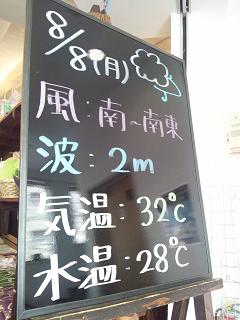 8/8(月)
風:南~南東
波:2m
気温:32℃
水温:28℃